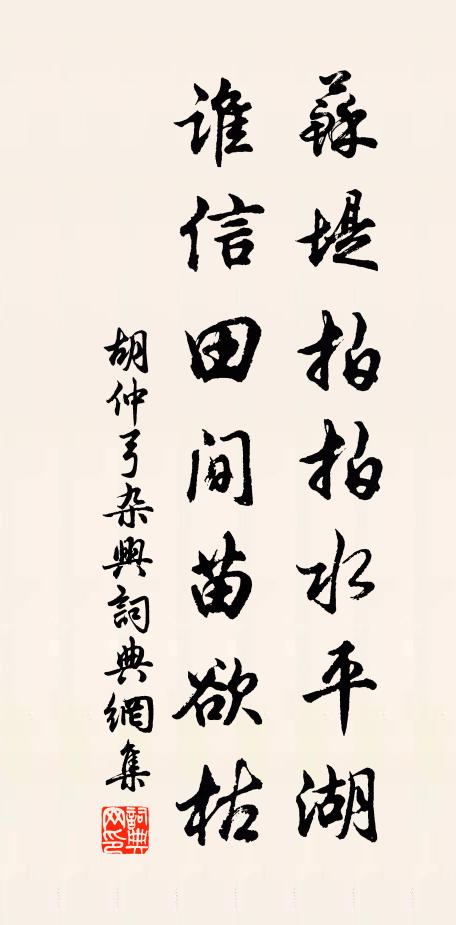 蘇堤拍拍水平湖
誰信田間苗欲枯
胡仲弓杂興詞典網集
詞典網印